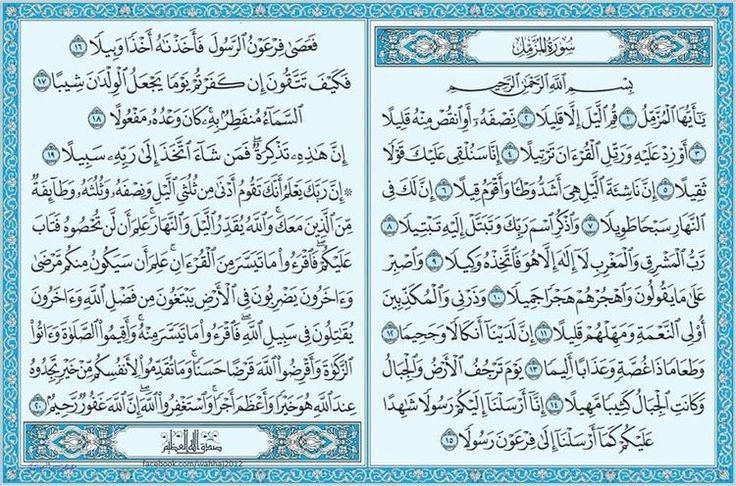 سُورَةُ المُزَّمِّل
بِسْمِ اللَّهِ الرَّحْمَٰنِ الرَّحِيمِ
يَٰٓأَيُّهَا ٱلْمُزَّمِّلُ ١ قُمِ ٱلَّيْلَ إِلَّا قَلِيلًا ٢ نِّصْفَهُۥٓ أَوِ ٱنقُصْ مِنْهُ قَلِيلًا
٣ أَوْ زِدْ عَلَيْهِ وَرَتِّلِ ٱلْقُرْءَانَ تَرْتِيلًا ٤ إِنَّا سَنُلْقِى عَلَيْكَ قَوْلًا
ثَقِيلًا ٥ إِنَّ نَاشِئَةَ ٱلَّيْلِ هِىَ أَشَدُّ وَطْـًٔا وَأَقْوَمُ قِيلًا ٦ إِنَّ لَكَ فِى
ٱلنَّهَارِ سَبْحًا طَوِيلًا ٧ وَٱذْكُرِ ٱسْمَ رَبِّكَ وَتَبَتَّلْ إِلَيْهِ تَبْتِيلًا ٨
رَّبُّ ٱلْمَشْرِقِ وَٱلْمَغْرِبِ لَآ إِلَٰهَ إِلَّا هُوَ فَٱتَّخِذْهُ وَكِيلًا ٩ وَٱصْبِرْ
عَلَىٰ مَا يَقُولُونَ وَٱهْجُرْهُمْ هَجْرًا جَمِيلًا ١٠ وَذَرْنِى وَٱلْمُكَذِّبِينَ
أُو۟لِى ٱلنَّعْمَةِ وَمَهِّلْهُمْ قَلِيلًا ١١ إِنَّ لَدَيْنَآ أَنكَالًا وَجَحِيمًا ١٢
وَطَعَامًا ذَا غُصَّةٍ وَعَذَابًا أَلِيمًا ١٣ يَوْمَ تَرْجُفُ ٱلْأَرْضُ وَٱلْجِبَالُ
وَكَانَتِ ٱلْجِبَالُ كَثِيبًا مَّهِيلًا ١٤ إِنَّآ أَرْسَلْنَآ إِلَيْكُمْ رَسُولًا شَٰهِدًا
عَلَيْكُمْ كَمَآ أَرْسَلْنَآ إِلَىٰ فِرْعَوْنَ رَسُولًا ١٥
فَعَصَىٰ فِرْعَوْنُ ٱلرَّسُولَ فَأَخَذْنَٰهُ أَخْذًا وَبِيلًا ١٦
فَكَيْفَ تَتَّقُونَ إِن كَفَرْتُمْ يَوْمًا يَجْعَلُ ٱلْوِلْدَٰنَ شِيبًا ١٧
ٱلسَّمَآءُ مُنفَطِرٌۢ بِهِۦ ۚ كَانَ وَعْدُهُۥ مَفْعُولًا ١٨
إِنَّ هَٰذِهِۦ تَذْكِرَةٌ ۖ فَمَن شَآءَ ٱتَّخَذَ إِلَىٰ رَبِّهِۦ سَبِيلًا ١٩
۞ إِنَّ رَبَّكَ يَعْلَمُ أَنَّكَ تَقُومُ أَدْنَىٰ مِن ثُلُثَىِ ٱلَّيْلِ وَنِصْفَهُۥ وَثُلُثَهُۥ وَطَآئِفَةٌ
مِّنَ ٱلَّذِينَ مَعَكَ ۚ وَٱللَّهُ يُقَدِّرُ ٱلَّيْلَ وَٱلنَّهَارَ ۚ عَلِمَ أَن لَّن تُحْصُوهُ فَتَابَ
عَلَيْكُمْ ۖ فَٱقْرَءُوا۟ مَا تَيَسَّرَ مِنَ ٱلْقُرْءَانِ ۚ عَلِمَ أَن سَيَكُونُ مِنكُم مَّرْضَىٰ
وَءَاخَرُونَ يَضْرِبُونَ فِى ٱلْأَرْضِ يَبْتَغُونَ مِن فَضْلِ ٱللَّهِ ۙ وَءَاخَرُونَ
يُقَٰتِلُونَ فِى سَبِيلِ ٱللَّهِ ۖ فَٱقْرَءُوا۟ مَا تَيَسَّرَ مِنْهُ ۚ وَأَقِيمُوا۟ ٱلصَّلَوٰةَ وَءَاتُوا۟
ٱلزَّكَوٰةَ وَأَقْرِضُوا۟ ٱللَّهَ قَرْضًا حَسَنًا ۚ وَمَا تُقَدِّمُوا۟ لِأَنفُسِكُم مِّنْ خَيْرٍ تَجِدُوهُ
عِندَ ٱللَّهِ هُوَ خَيْرًا وَأَعْظَمَ أَجْرًا ۚ وَٱسْتَغْفِرُوا۟ ٱللَّهَ ۖ إِنَّ ٱللَّهَ غَفُورٌ رَّحِيمٌۢ ٢٠
صدق الله العظيم
facebook.com/wahhaj2012